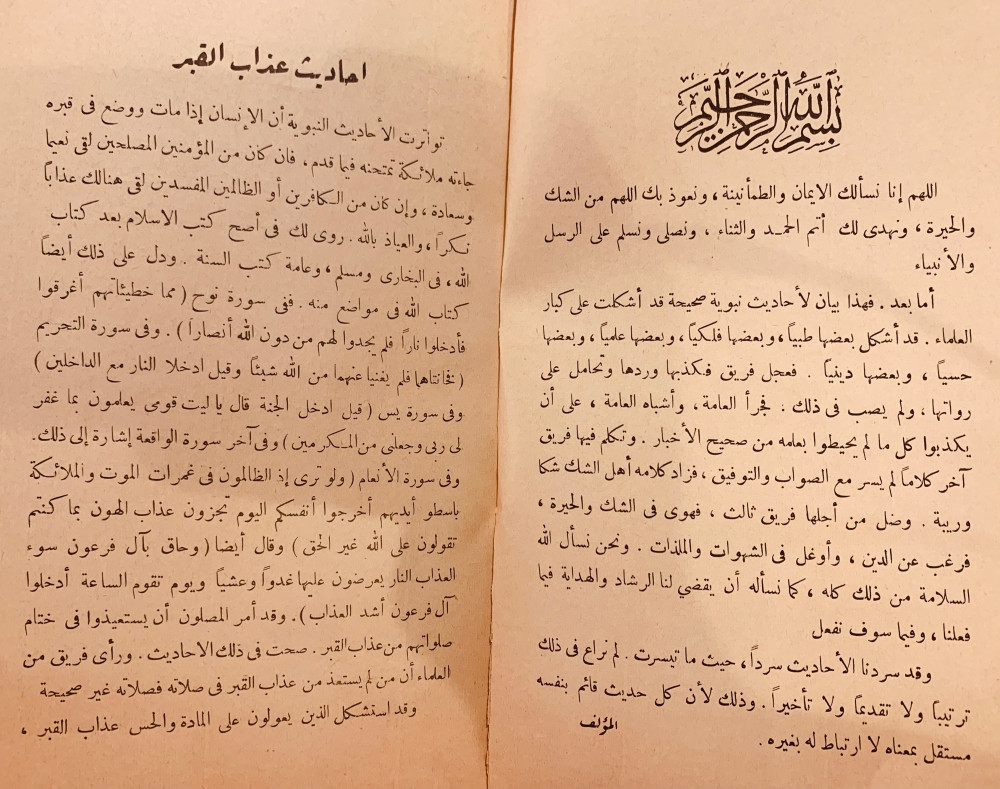 بسم الله الرحمن الرحيم
اللهم إنا نسألك الايمان والطمأنينة، ونعوذ بك اللهم من الشك
والحيرة، ونهدى لك أتم الحمد والثناء، ونصلى ونسلم على الرسل
والأنبياء
أما بعد. فهذا بيان لأحاديث نبوية صحيحة قد أشكلت على كبار
العلماء. قد أشكل بعضها طبياً، وبعضها فلكياً، وبعضها علمياً، وبعضها
حسياً، وبعضها دينياً. فعجل فريق فكذبها وردها وتحامل على
رواتها، ولم يصب فى ذلك: فجرأ العامة، وأشباه العامة، على أن
يكذبوا كل ما لم يحيطوا بعلمه من صحيح الأخبار. وتكلم فيها فريق
آخر كلاماً لم يسر مع الصواب والتوفيق، فزاد كلامه أهل الشك شكا
وريبة. وضل من أجلها فريق ثالث، فهوى فى الشك والحيرة،
فرغب عن الدين، وأوغل فى الشهوات والملذات. ونحن نسأل الله
السلامة من ذلك كله، كما نسأله أن يقضي لنا الرشاد والهداية فيما
فعلنا، وفيما سوف نفعل
وقد سردنا الأحاديث سرداً، حيث ما تيسرت. لم نراع فى ذلك
ترتيباً ولا تقديماً ولا تأخيراً. وذلك لأن كل حديث قائم بنفسه
مستقل بمعناه لا ارتباط له بغيره.
المؤلف
احاديث عذاب القبر
تواترت الأحاديث النبوية أن الإنسان إذا مات ووضع فى قبره
جاءته ملائكة تمتحنه فيما قدم، فان كان من المؤمنين المصلحين لقى نعيما
وسعادة، وإن كان من الكافرين أو الظالمين المفسدين لقى هنالك عذاباً
نكراً، والعياذ بالله. روى لك فى أصح كتب الاسلام بعد كتاب
الله، فى البخارى ومسلم، وعامة كتب السنة. ودل على ذلك أيضاً
كتاب الله فى مواضع منه. ففى سورة نوح (مما خطيئاتهم أغرقوا
فأدخلوا ناراً فلم يجدوا لهم من دون الله أنصاراً). وفى سورة التحريم
(فخانتاهما فلم يغنيا عنهما من الله شيئاً وقيل ادخلا النار مع الداخلين)
وفى سورة يس (قيل ادخل الجنة قال يا ليت قومى يعلمون بما غفر
لى ربى وجعلنى من المكرمين) وفى آخر سورة الواقعة إشارة إلى ذلك.
وفى سورة الأنعام (ولو ترى إذ الظالمون فى غمرات الموت والملائكة
باسطو أيديهم أخرجوا أنفسكم اليوم تجزون عذاب الهون بما كنتم
تقولون على الله غير الحق) وقال أيضا (وحاق بآل فرعون سوء
العذاب النار يعرضون عليها غدواً وعشياً ويوم تقوم الساعة أدخلوا
آل فرعون أشد العذاب). وقد أمر المصلون أن يستعيذوا فى ختام
صلواتهم من عذاب القبر. صحت فى ذلك الاحاديث. ورأى فريق من
العلماء أن من لم يستعذ من عذاب القبر فى صلاته فصلاته غير صحيحة
وقد استشكل الذين يعولون على المادة والحس عذاب القبر،